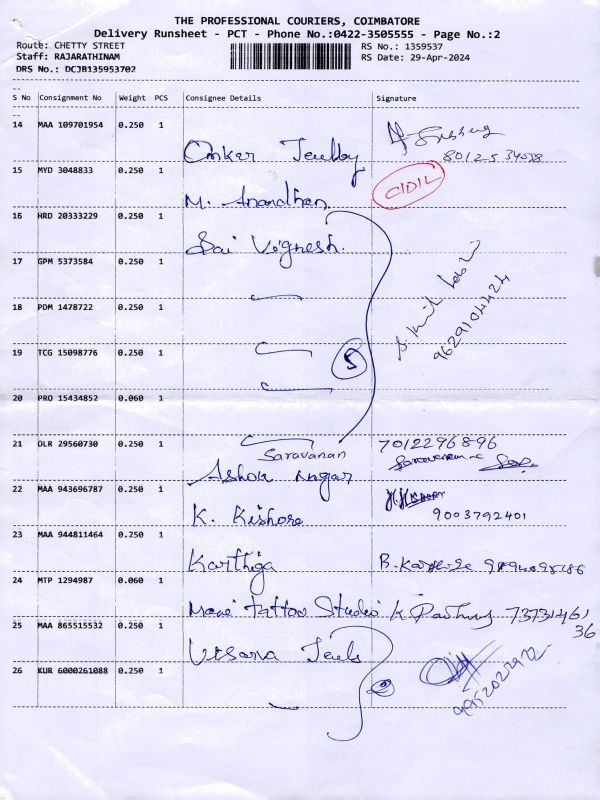 THE PROFESSIONAL COURIERS, COIMBATORE
Delivery Runsheet - PCT - Phone No.:0422-3505555 - Page No.:2
Route: CHETTY STREET RS No.: 1359537
Staff: RAJARATHINAM RS Date: 29-Apr-2024
DRS No.: DCJB135953702
S No Consignment No Weight PCS Consignee Details Signature
14 MAA 109701954 0.250 1
80125 34028
15 MYD 3048833 0.250 1
M. Anandhan
16 HRD 20333229 0.250 1
Sai Vignesh.
17 GPM 5373584 0.250 1
18 PDM 1478722 0.250 1
9629104424
19 TCG 15098776 0.250 1
5
20 PRO 15434852 0.060 1
21 OLR 29560730 0.250 1 7012296896
Saravanan
Ashok nagar
22 MAA 943696787 0.250 1
K. Kishore 9003792401
23 MAA 944811464 0.250 1
Karthiga
24 MTP 1294987 0.060 1
Mani Tattoo Studio 73731461
36
25 MAA 865515532 0.250 1
26 KUR 6000261088 0.250 1
2